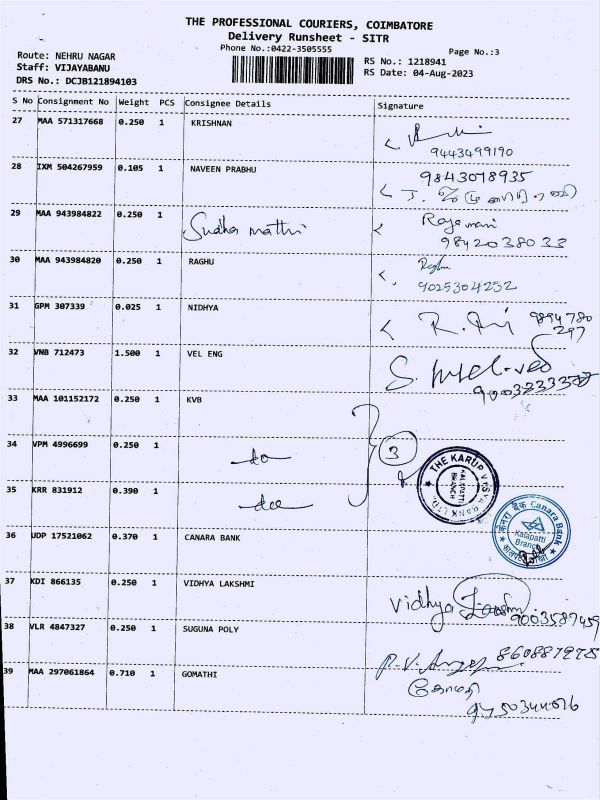 THE PROFESSIONAL COURIERS, COIMBATORE
Delivery Runsheet - SITR
Phone No.:0422-3505555
Page No.:3
Route: NEHRU NAGAR
Staff: VIJAYABANU
DRS No.: DCJB121894103
RS No.: 1218941
RS Date: 04-Aug-2023
S No Consignment No Weight PCS Consignee Details Signature
27 MAA 571317668 0.250 1 KRISHNAN
9443499190
28 IXM 504267959 0.105 1 NAVEEN PRABHU 9843018935
29 MAA 943984822 0.250 1 Sudha mathi Rajamani
9842038033
30 MAA 943984820 0.250 1 RAGHU Raghu
9025304232
31 GPM 307339 0.025 1 NIDHYA 9894780
297
32 VNB 712473 1.500 1 VEL ENG
33 MAA 101152172 0.250 1 KVB
34 VPM 4996699 0.250 1 do 3
THE KARUR VYSYA BANK LTD.
KALAPATTI
BRANCH
35 KRR 831912 0.390 1
36 UDP 17521062 0.370 1 CANARA BANK
केनरा बैंक Canara Bank
Kalapatti
Branch
37 KDI 866135 0.250 1 VIDHYA LAKSHMI Vidhya
9003587459
38 VLR 4847327 0.250 1 SUGUNA POLY
39 MAA 297061864 0.710 1 GOMATHI கோமதி